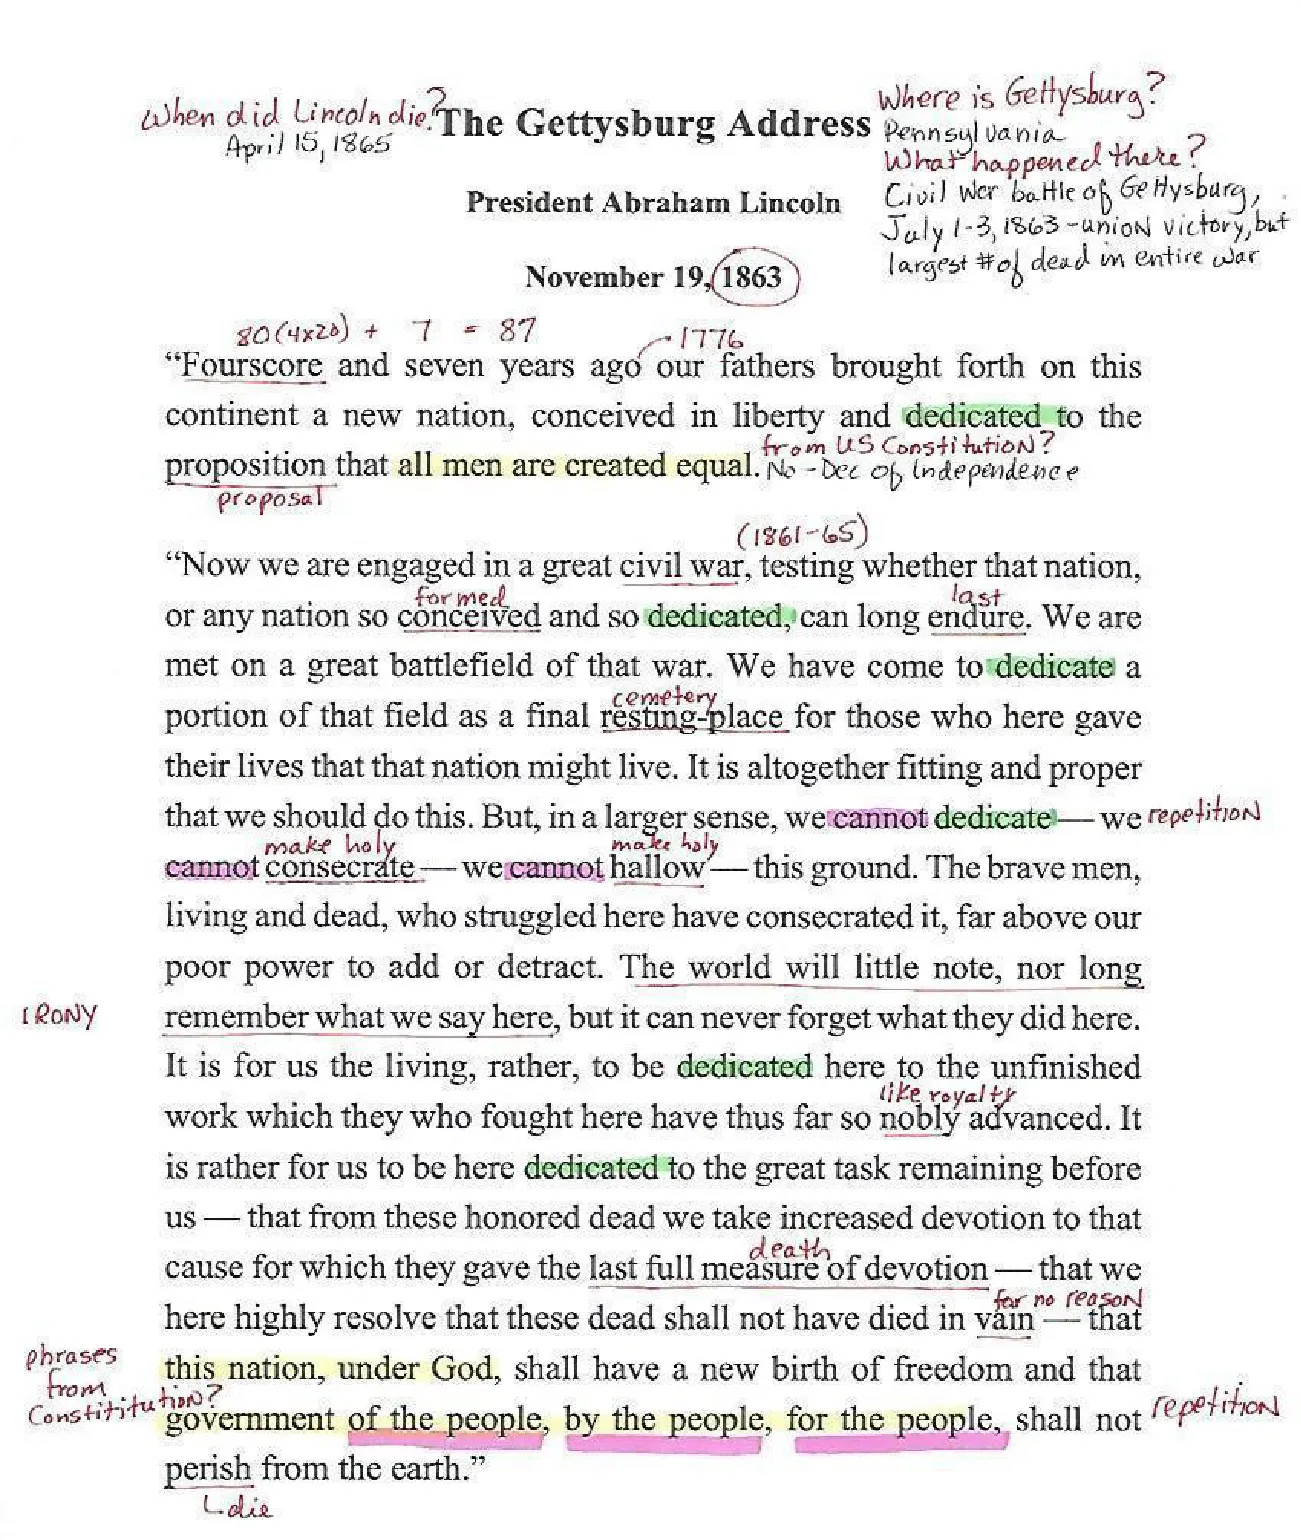 When did Lincoln die?
April 15, 1865
The Gettysburg Address
Where is Gettysburg?
Pennsylvania
What happened there?
Civil War battle of Gettysburg,
July 1-3, 1863 - union victory, but
largest # of dead in entire war
President Abraham Lincoln
November 19, 1863
80 (4x20) + 7 = 87
1776
“Fourscore and seven years ago our fathers brought forth on this
continent a new nation, conceived in liberty and dedicated to the
from US Constitution?
proposition that all men are created equal. No - Dec of Independence
proposal
(1861-65)
“Now we are engaged in a great civil war, testing whether that nation,
formed last
or any nation so conceived and so dedicated, can long endure. We are
met on a great battlefield of that war. We have come to dedicate a
cemetery
portion of that field as a final resting-place for those who here gave
their lives that that nation might live. It is altogether fitting and proper
that we should do this. But, in a larger sense, we cannot dedicate — we repetition
make holy make holy
cannot consecrate — we cannot hallow — this ground. The brave men,
living and dead, who struggled here have consecrated it, far above our
poor power to add or detract. The world will little note, nor long
IRONY remember what we say here, but it can never forget what they did here.
It is for us the living, rather, to be dedicated here to the unfinished
like royalty
work which they who fought here have thus far so nobly advanced. It
is rather for us to be here dedicated to the great task remaining before
us — that from these honored dead we take increased devotion to that
death
cause for which they gave the last full measure of devotion — that we
for no reason
here highly resolve that these dead shall not have died in vain — that
phrases
from
Constititution?
this nation, under God, shall have a new birth of freedom and that
government of the people, by the people, for the people, shall not repetition
perish from the earth.”
die